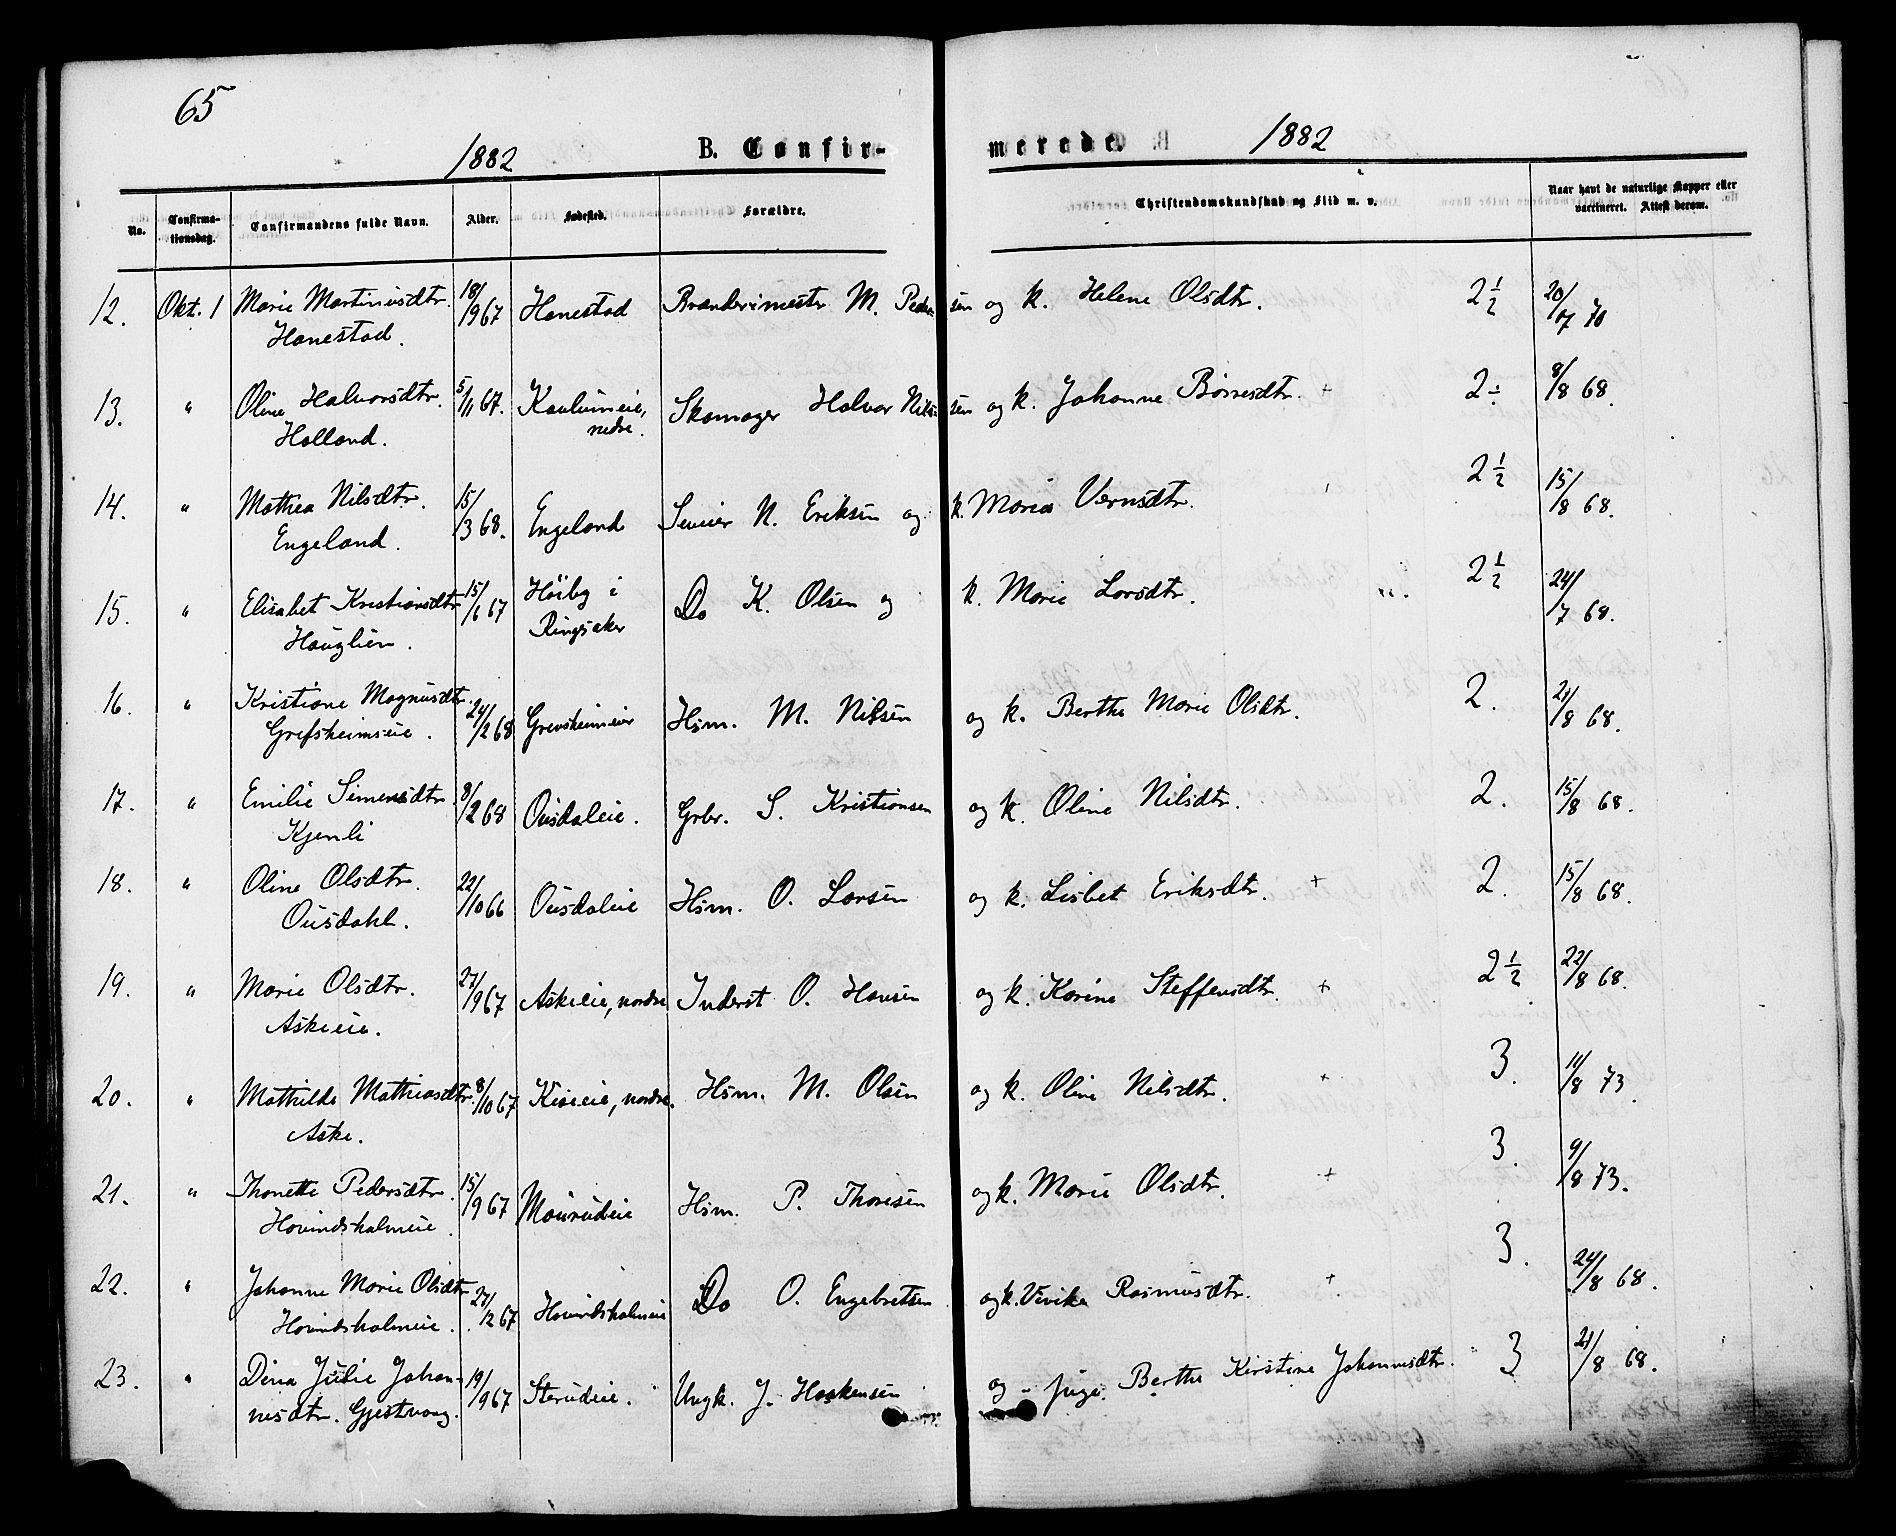 65
1882 B. Confir- merede. 1882
No. Confirma-tionsdag. Confirmandens fulde Navn. Alder. Fødested. Forældre. Christendomskundskab og Flid m. v. Naar havt de naturlige Kopper eller vaccineret. Attest derom.
12. Okt. 1 Marie Martinusdtr. 18/9 67 Hanestad Brænderimester M. Pedersen og k. Helene Olsdtr. 2 1/2 20/7 70
Hanestad.
13. " Oline Halvorsdtr. 5/11 67. Kaulumeie, Skomager Halvor Nilsen og k. Johanne Børresdtr. + 2 ÷ 8/8 68.
Holland. nedre.
14. " Mathea Nilsdtr. 15/3 68. Engeland Inderst N. Eriksen og k. Maria Vernsdtr. 2 1/2 15/8 68.
Engeland.
15. " Elisabet Kristiansdtr. 15/6 67 Høiby i Do K. Olsen og k. Marie Larsdtr. 2 1/2 24/7 68.
Hauglien. Ringsaker
16. " Kristiane Magnusdtr. 24/2 68 Grevsheimeier Hsm. M. Nilsen og k. Berthe Marie Olsdtr. 2. 21/8 68.
Grefsheimseie.
17. " Emilie Simensdtr. 8/2 68 Ousdaleie. Grbr. S. Kristiansen og k. Oline Nilsdtr. 2. 15/8 68.
Kjenli
18. " Oline Olsdtr. 22/10 66 Ousdaleie Hsm. O. Larsen og k. Lisbet Eriksdtr. + 2. 15/8 68.
Ousdahl.
19. " Marie Olsdtr. 27/9 67 Askeeie, nordre Inderst O. Hansen og k. Karine Steffensdtr. + 2 1/2 22/8 68.
Askeeie.
20. " Mathilde Mathiasdtr. 8/10 67 Kiseeie, nordre. Hsm. M. Olsen og k. Oline Nilsdtr. + 3. 11/8 73.
Aske.
21. " Thonette Pedersdtr. 15/9 67 Maurudeie Hsm. P. Thoresen og k. Marie Olsdtr. + 3. 9/8 73.
Hovindsholmeie
22. " Johanne Marie Olsdtr. 27/12 67 Hovindsholmeie Do O. Engebretsen og k. Vivike Rasmusdtr. + 3. 24/8 68.
Hovindsholmeie.
23. " Dina Julie Johan- 19/9 67 Sterudeie. Ungk. J. Haakensen og pige. Berthe Kirstine Johannesdtr. 3 21/8 68.
nesdtr. Gjestvang.